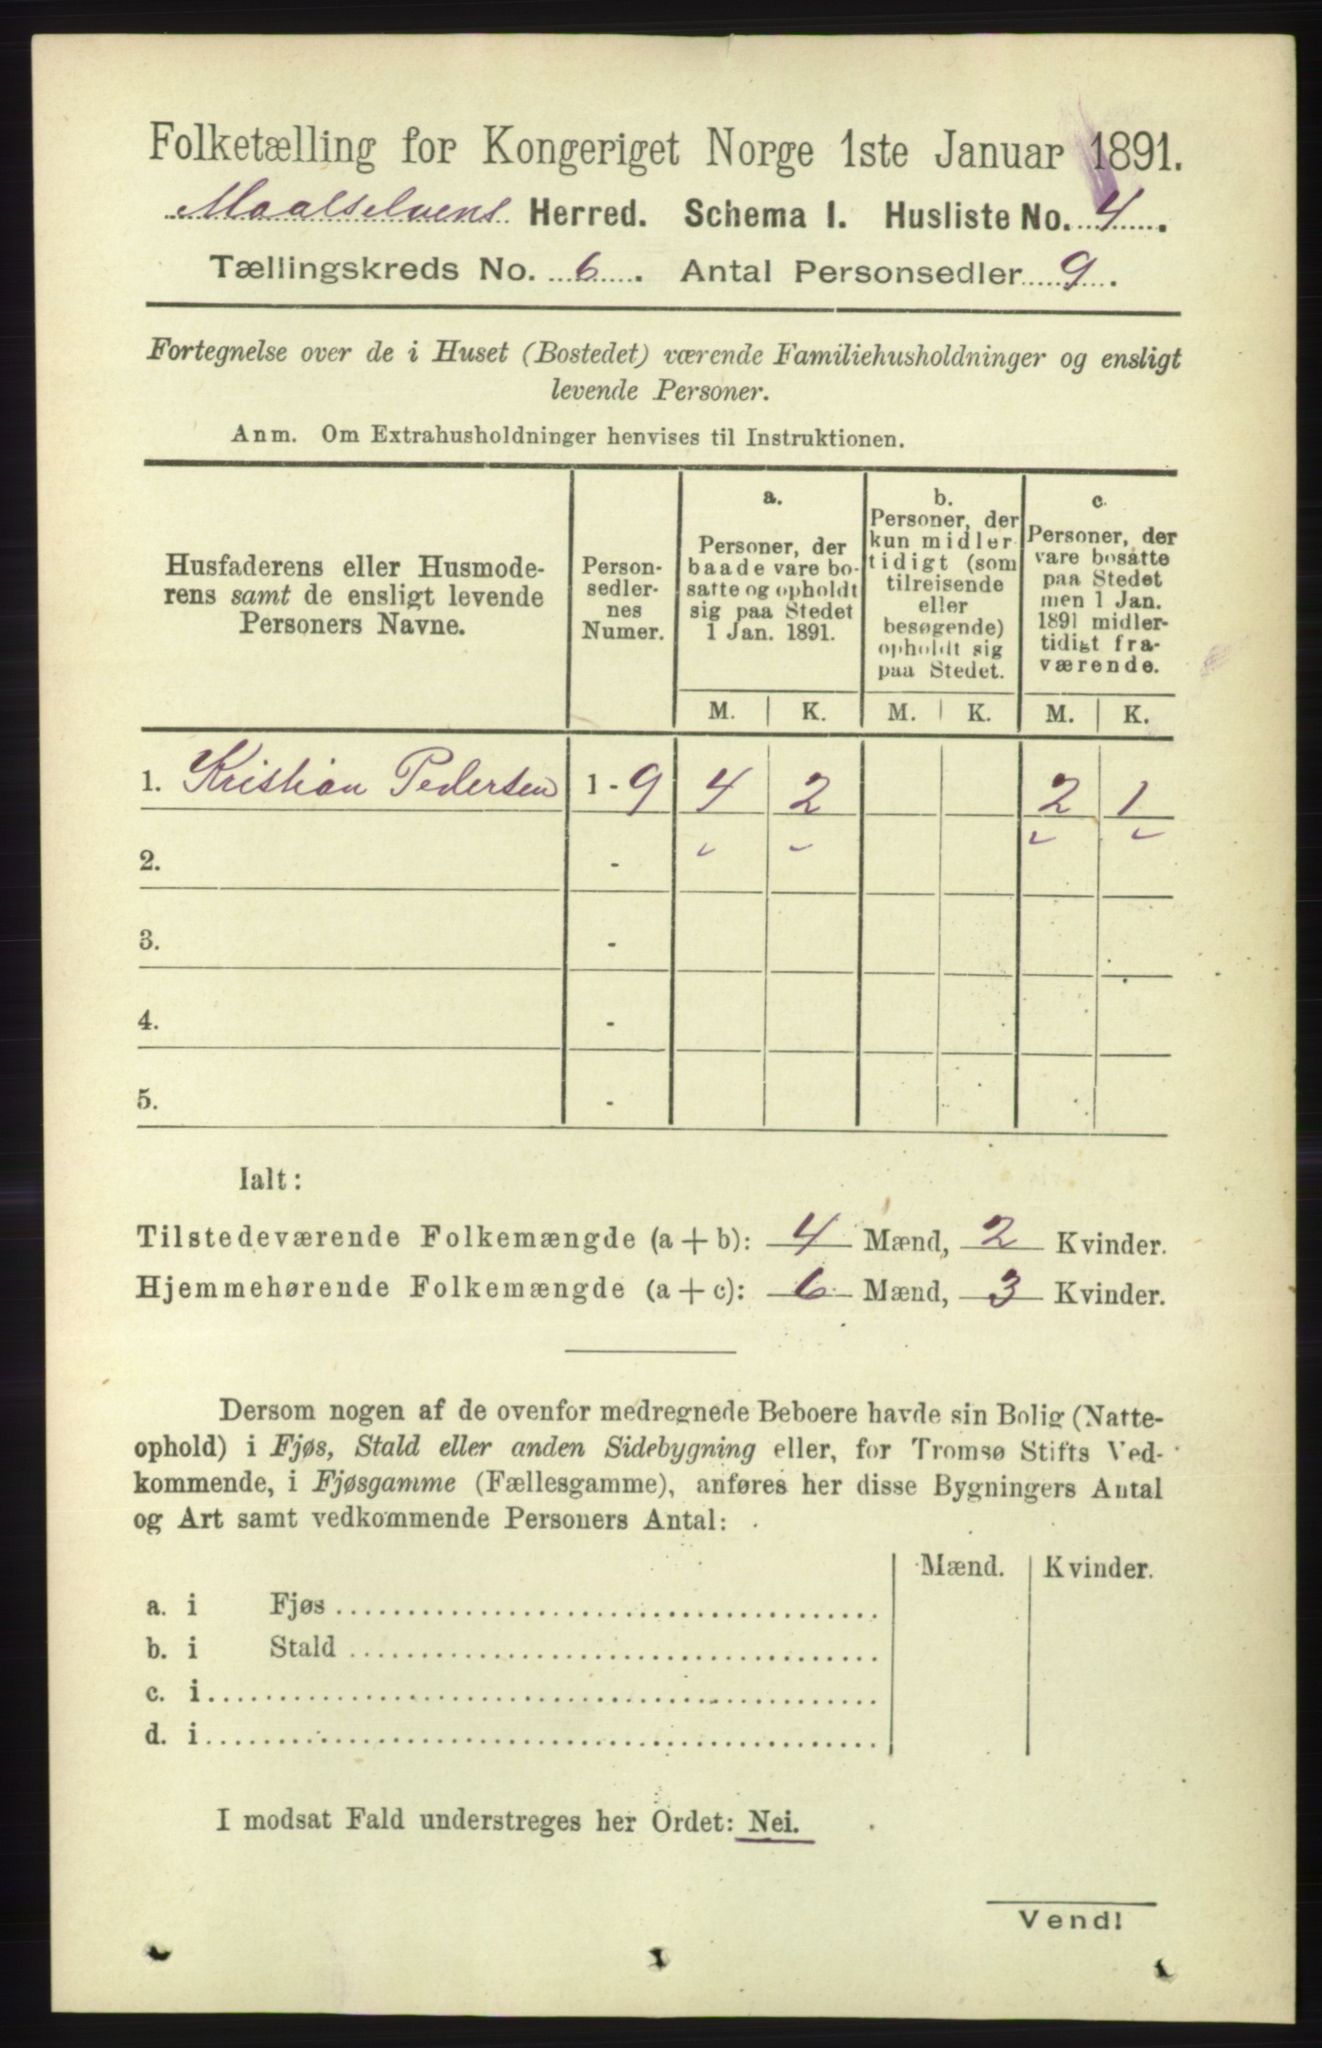 Folketælling for Kongeriget Norge 1ste Januar 1891.
Maalselvens Herred. Schema I. Husliste No. 4.
Tællingskreds No. 6. Antal Personsedler 9.
Fortegnelse over de i Huset (Bostedet) værende Familiehusholdninger og ensligt
levende Personer.
Anm. Om Extrahusholdninger henvises til Instruktionen.
Husfaderens eller Husmode-
rens samt de ensligt levende
Personers Navne.
Person-
sedler-
nes
Numer.
a.
Personer, der
baade vare bo-
satte og opholdt
sig paa Stedet
1 Jan. 1891.
b.
Personer, der
kun midler
tidigt (som
tilreisende
eller
besøgende)
opholdt sig
paa Stedet.
c.
Personer, der
vare bosatte
paa Stedet
men 1 Jan.
1891 midler-
tidigt fra-
værende.
M. K. M. K. M. K.
1. Kristian Pedersen 1 - 9 4 2 2 1
2. -
3. -
4. -
5. -
Ialt:
Tilstedeværende Folkemængde (a + b): 4 Mænd, 2 Kvinder.
Hjemmehørende Folkemængde (a + c): 6 Mænd, 3 Kvinder.
Dersom nogen af de ovenfor medregnede Beboere havde sin Bolig (Natte-
ophold) i Fjøs, Stald eller anden Sidebygning eller, for Tromsø Stifts Ved-
kommende, i Fjøsgamme (Fællesgamme), anføres her disse Bygningers Antal
og Art samt vedkommende Personers Antal:
Mænd. Kvinder.
a. i Fjøs
b. i Stald
c. i
d. i
I modsat Fald understreges her Ordet: Nei.
Vend!